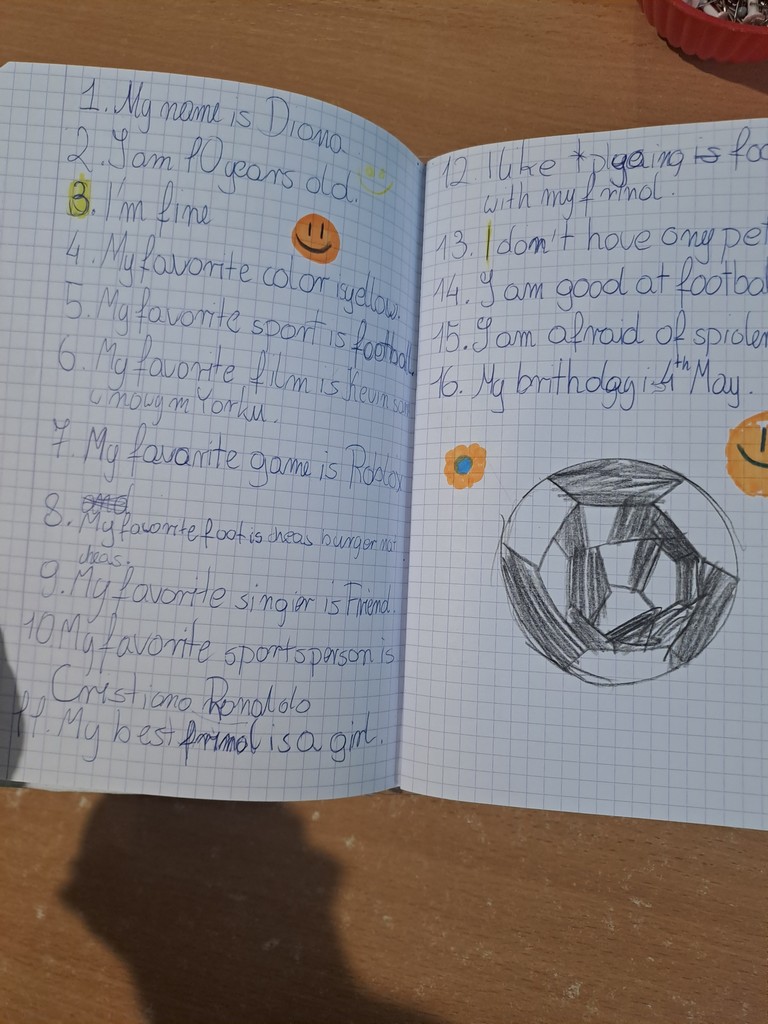 1. My name is Diana
2. I am 10 years old.
3. I'm fine
4. My favorite color is yellow.
5. My favorite sport is football
6. My favorite film is Kevin sam
w nowym Yorku.
7. My favarite game is Roblox
8. My favorite foot is cheas burger
cheas.
9. My favorite singier is Friend.
10 My favorite sportsperson is
Cristiano Ronaldo
11. My best frind is a girl.
12 I like *plyaing is foo
with my frind.
13. I don't have any pet
14. I am good at footbal
15. I am afraid of spider
16. My brithday is 4th May.